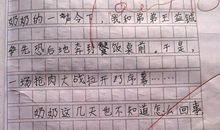 奶奶的一声令下，我和弟弟王益诚
争先恐后地奔到餐饭桌前。于是，
一场抢肉大战拉开了序幕……
奶奶这几天也不知道怎么回事